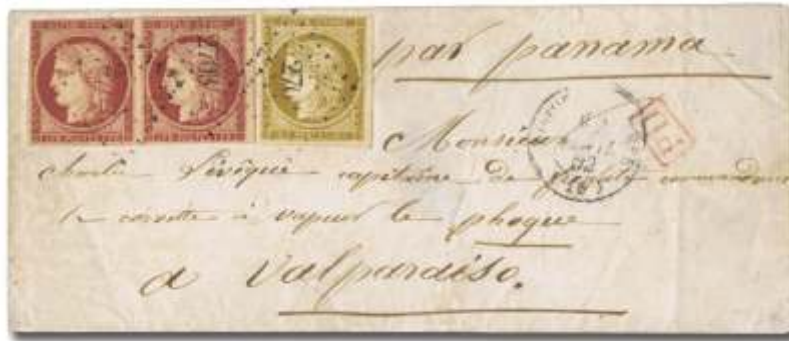 par panama
Monsieur
Charles Lévêque capitaine de frégate commandant
la corvette à vapeur le phoque
a Valparaiso.